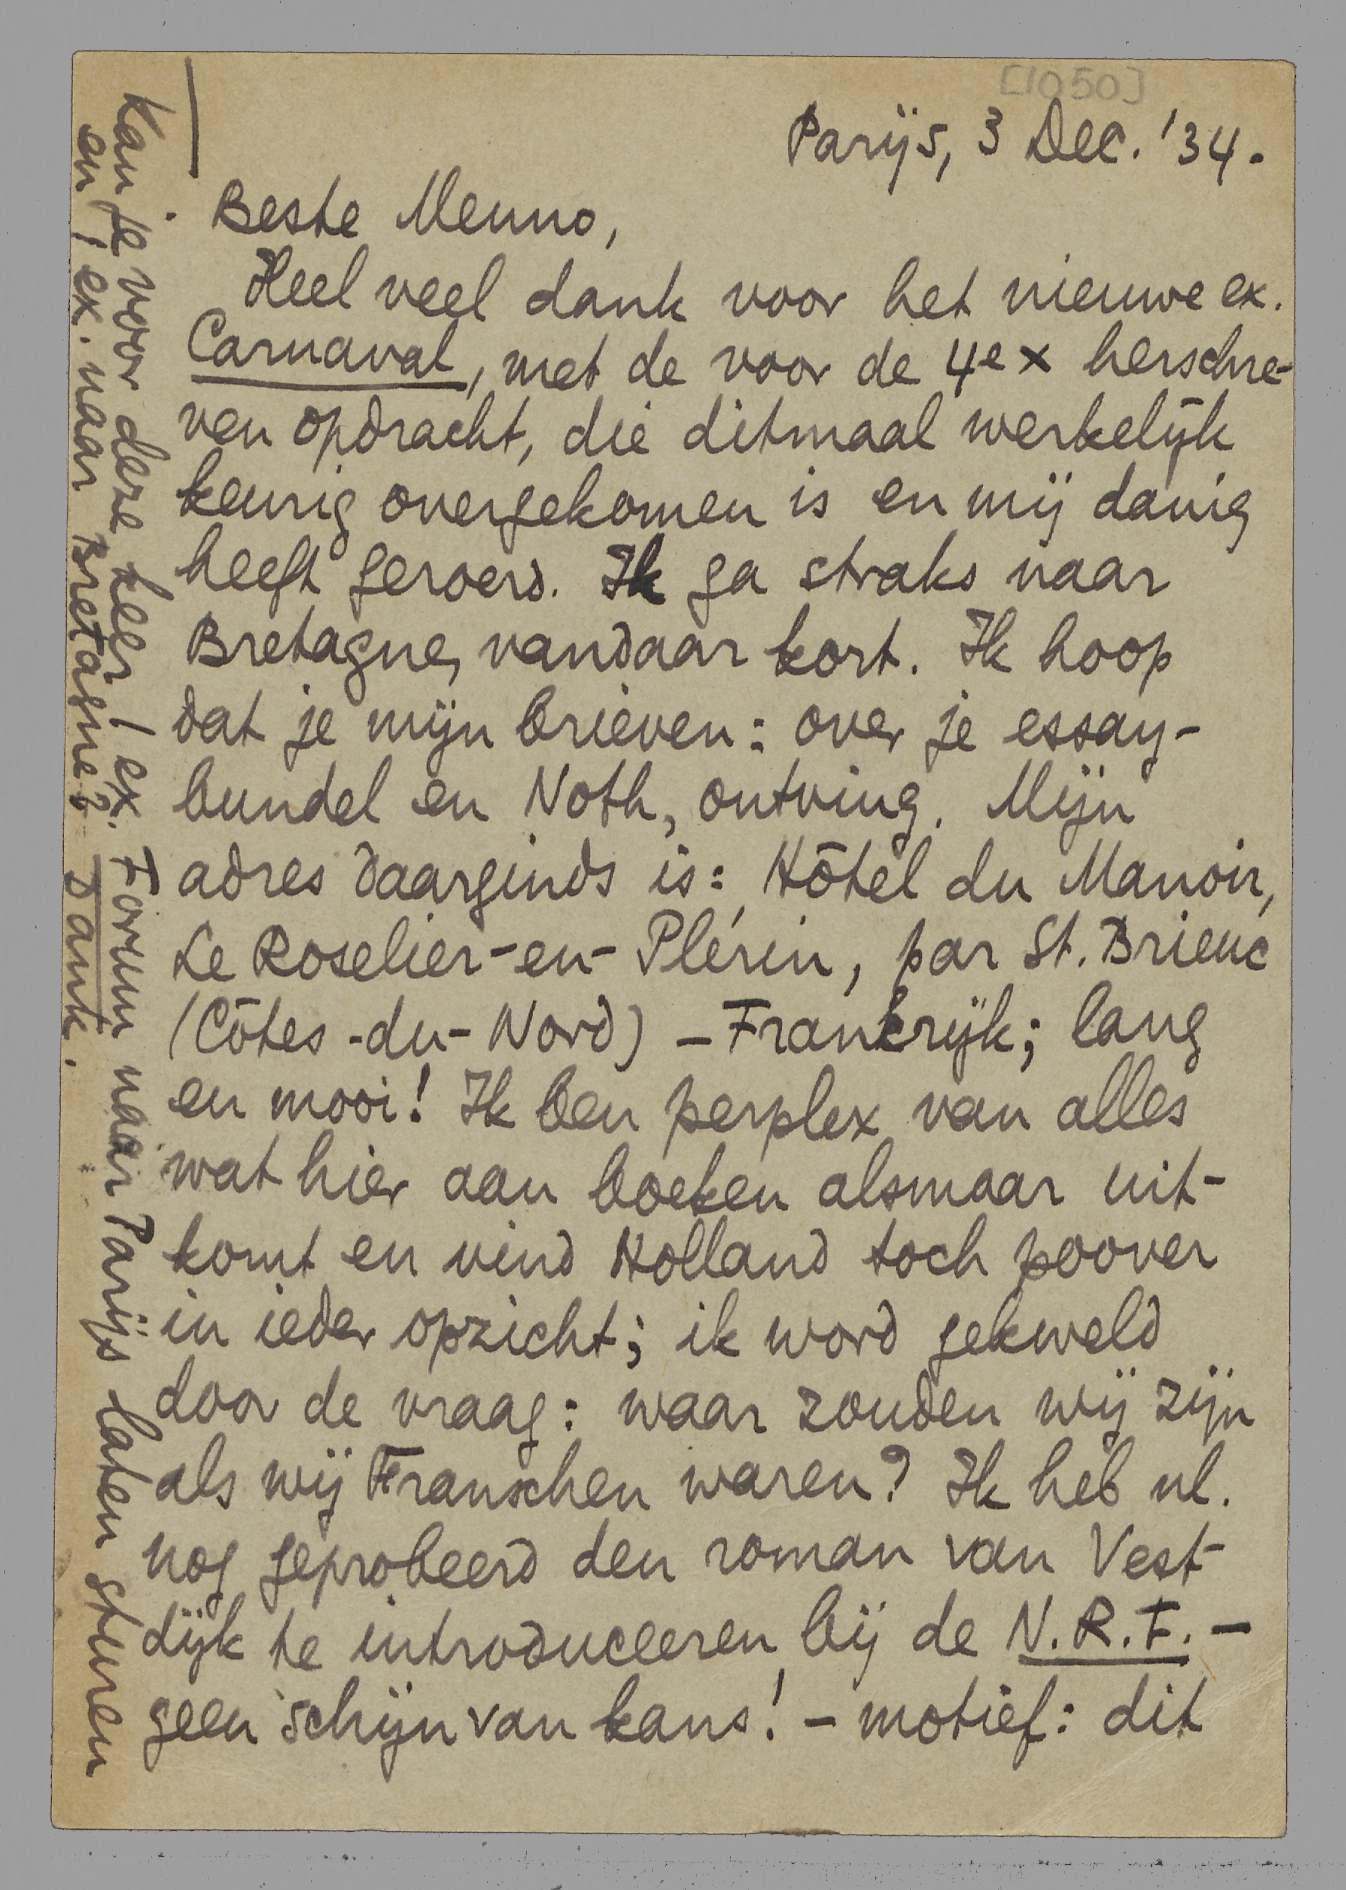 [1050]
Parijs, 3 Dec. '34.
Beste Menno,
Heel veel dank voor het nieuwe ex.
Carnaval, met de voor de 4e x herschre-
ven opdracht, die ditmaal werkelijk
keurig overgekomen is en mij danig
heeft geroerd. Ik ga straks naar
Bretagne, vandaar kort. Ik hoop
dat je mijn brieven: over je essay-
bundel en Noth, ontving. Mijn
adres daarginds is: Hôtel du Manoir,
Le Roselier-en-Plérin, par St. Brieuc
(Côtes-du-Nord) – Frankrijk; lang
en mooi! Ik ben perplex van alles
wat hier aan boeken alsmaar uit-
komt en vind Holland toch poover
in ieder opzicht; ik word gekweld
door de vraag: waar zouden wij zijn
als wij Franschen waren? Ik heb nl.
nog geprobeerd den roman van Vest-
dijk te introduceeren bij de N.R.F. –
geen schijn van kans! – motief: dit
Kan je voor deze keer 1 ex. Forum naar Parijs laten sturen
en 1 ex. naar Bretagne? Dank.